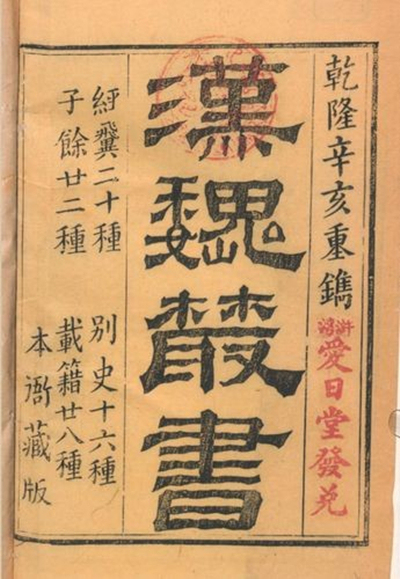 乾隆辛亥重鐫
愛日堂發兑
漢魏叢書
經翼二十種 別史十六種
子餘廿二種 載籍廿八種
本衙藏版